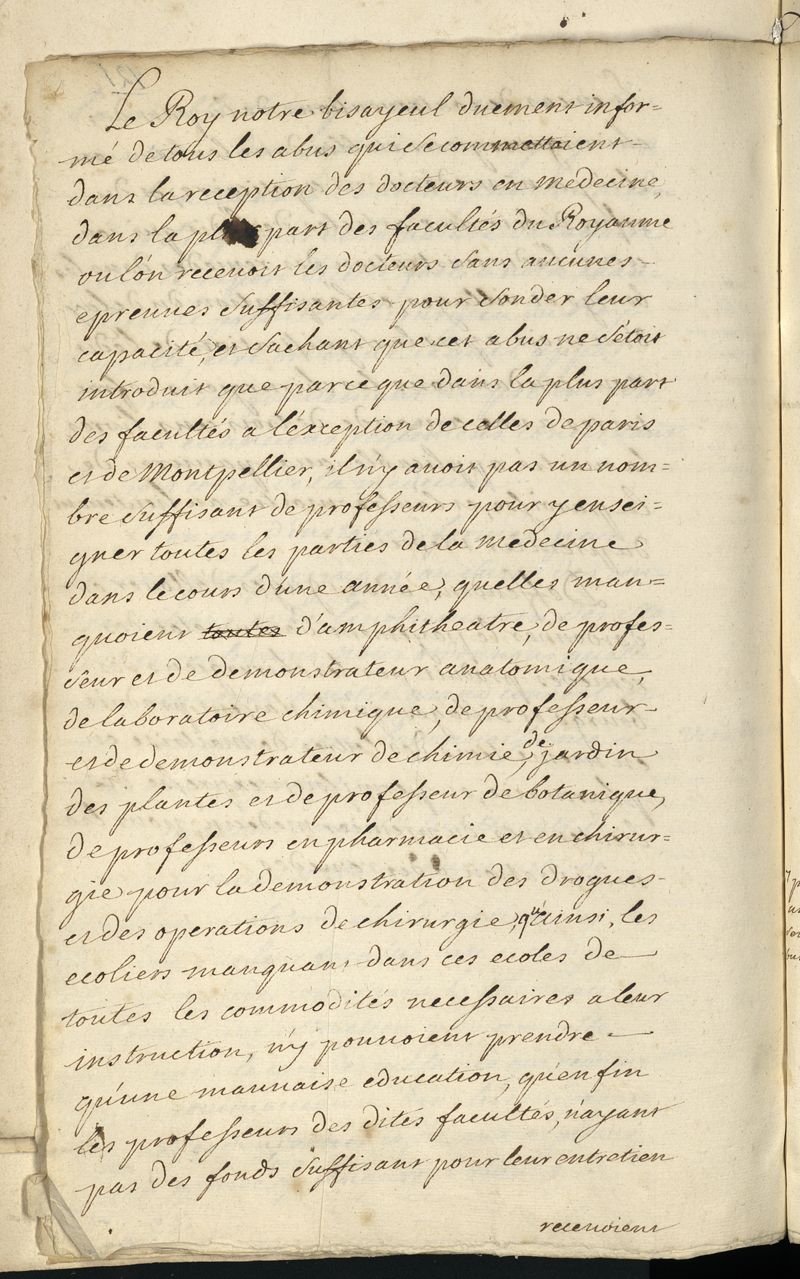 Le Roy notre bisayeul duement infor=
mé de tous les abus qui se commettoient
dans la reception des docteurs en medecine,
dans la plus part des facultés du Royaume
ou l'on recevoit les docteurs sans aucunes
epreuves suffisantes pour sonder leur
capacité, et sachant que cet abus ne s'étoit
introduit que parce que dans la plus part
des facultés a l'éxception de celles de paris
et de Montpellier, il n'y avoit pas un nom=
bre suffisant de professeurs pour y ensei=
gner toutes les parties de la medecine
dans le cours d'une année, quelles man=
quoient toutes d'amphitheatre, de profes=
seur et de demonstrateur anatomique,
de laboratoire chimique, de professeur
et de demonstrateur de chimie, de jardin
des plantes et de professeur de botanique,
de professeurs en pharmacie et en chirur=
gie pour la demonstration des drogues
et des operations de chirurgie, qu'ainsi, les
ecoliers manquans dans ces ecoles de
toutes les commodités necessaires a leur
instruction, n'y pouvoient prendre
qu'une mauvaise education, qu'enfin
les professeurs des dites facultés, n'ayant
pas des fonds suffisant pour leur entretien
recevoient